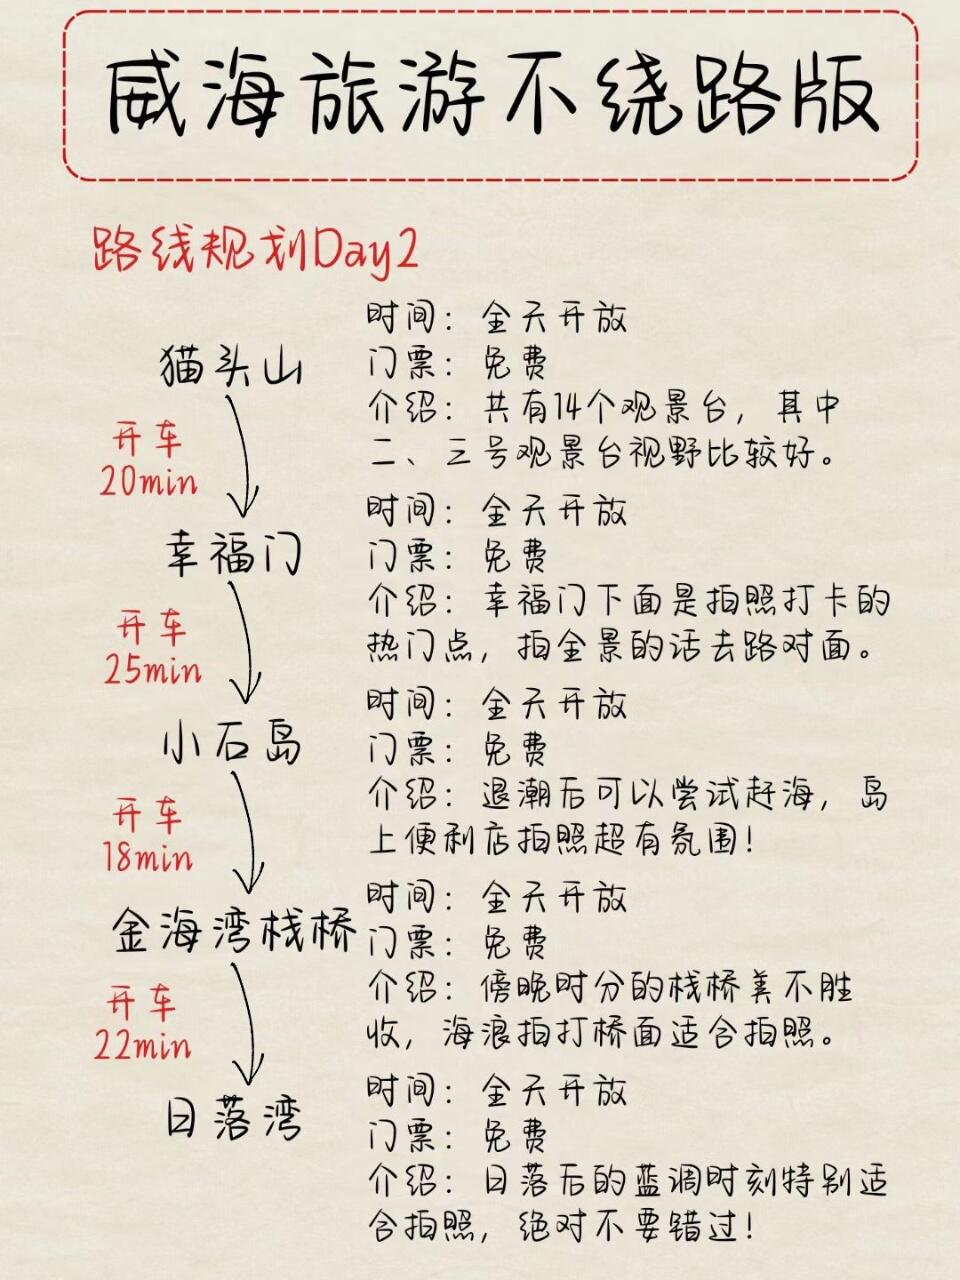 威海旅游不绕路版
路线规划Day2
猫头山
时间：全天开放
门票：免费
介绍：共有14个观景台，其中
二、三号观景台视野比较好。
开车
20min
幸福门
时间：全天开放
门票：免费
介绍：幸福门下面是拍照打卡的
热门点，拍全景的话去路对面。
开车
25min
小石岛
时间：全天开放
门票：免费
介绍：退潮后可以尝试赶海，岛
上便利店拍照超有氛围！
开车
18min
金海湾栈桥
时间：全天开放
门票：免费
介绍：傍晚时分的栈桥美不胜
收，海浪拍打桥面适合拍照。
开车
22min
日落湾
时间：全天开放
门票：免费
介绍：日落后的蓝调时刻特别适
合拍照，绝对不要错过！